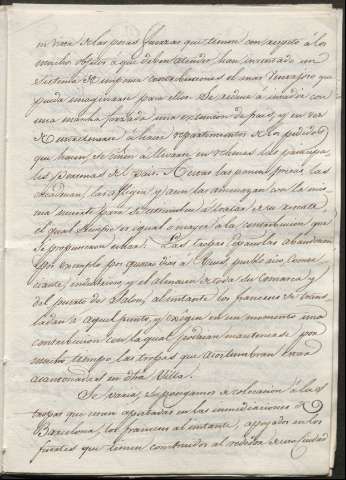 en vista de las pocas fuerzas que tienen con respeto á los
muchos objetos a que deben atender, han inventado un
sistema de imponer contribuciones el mas ventajoso que
pueda imaginarse para ellos. Se reduce á invadir con
una marcha forzada una extension de pais, y en vez
de entretenerse á hacer repartimientos de los pedidos
que hacen, se ciñen a llevarse en rehenes las principa-
les personas de Pais. A estas las ponen presas, las
atadman, las afligen y aun las amenazan con la mis-
ma muerte para de estimular a tratar de su rescate
el qual siempre es igual o mayor a la contribucion que
se propusieron echarle. Las tropas españolas abandonan
por exemplo por quatro dias a Reus, pueblo rico, comer-
ciante, industrioso y el almacen de toda su comarca y
del puerto de Salou, al instante los franceses se tras-
ladan a aquel punto, y exigen en un momento una
contribucion con la qual podrian mantenerse por
mucho tiempo las tropas que acostumbran estar
acantonadas en dha Villa.
Se varia, supongamos, de colocacion á las
tropas que tienen apostadas en las inmediaciones de
Barcelona, los franceses al instante, apoyados en los
fuertes que tienen construidos al rededor de esta Ciudad